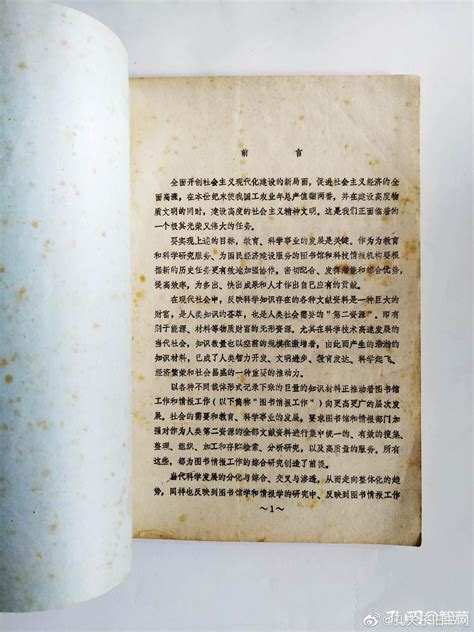 前言
全面开创社会主义现代化建设的新局面，促进社会主义经济的全
面高涨，在本世纪末使我国工农业年总产值翻两番，并在建设高度物
质文明的同时，建设高度的社会主义精神文明。这是我们正面临着的
一个极其光荣又伟大的任务。
要实现上述的目标，教育、科学事业的发展是关键。作为为教育
和科学研究服务、为国民经济建设服务的图书馆和科技情报机构要根
据新的历史任务更有效地加强协作，密切配合、发挥潜能和综合优势，
提高效率，为多出、快出成果和人才作出自己应有的贡献。
在现代社会中，反映科学知识存在的各种文献资料是一种巨大的
财富，是人类知识的荟萃，也是人类社会需要的“第二资源”。即有
别于能源、材料等物质财富的无形资源。尤其在科学技术高速发展的
当代社会，知识数量也以空前的规模在激增着，由此而产生的浩瀚的
知识材料，已成了人类智力开发、文明进步、教育发达、科学起飞、
经济繁荣和社会昌盛的一种重要的推动力。
以各种不同载体形式记录下来的巨量的知识材料正推动着图书馆
工作和情报工作（以下简称“图书情报工作”）向更高更广的层次发
展。社会的需要和教育、科学事业的发展，要求图书馆和情报部门加
强对作为人类第二资源的全部文献资料进行集中统一的、有效的搜集、
整理、组织、加工和存贮检索、分析研究，以及高质量的服务。所有
这些，都为图书情报工作的综合研究创造了前提。
当代科学发展的分化与综合、交叉与渗透，从而走向整体化的趋
势，同样也反映到图书馆学和情报学的研究中、反映到图书情报工作
～1～
孔网@智萌